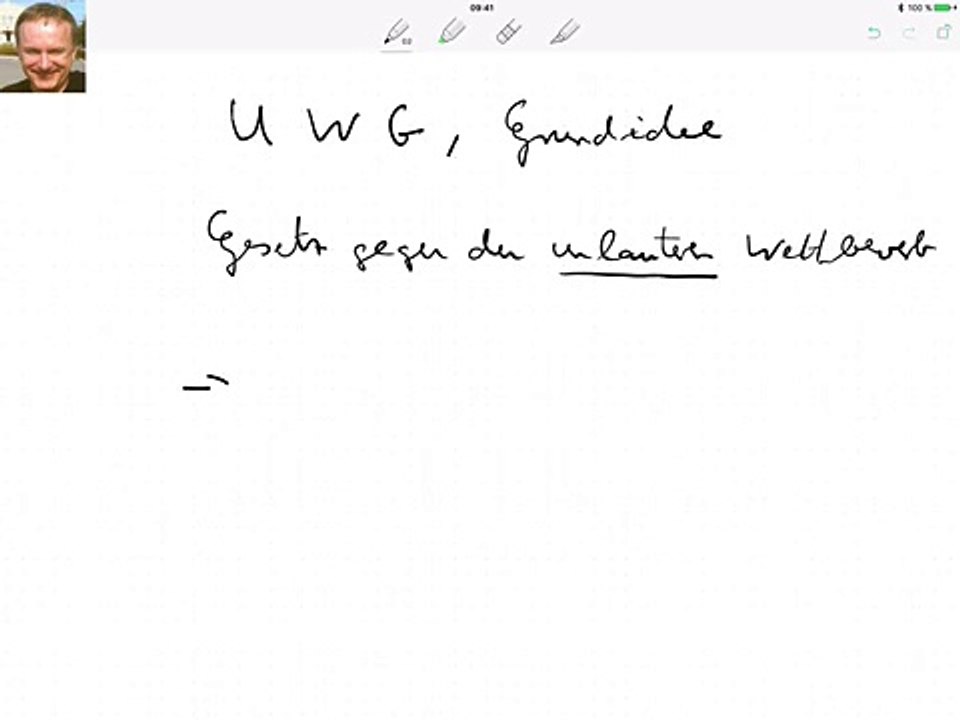 09:41
100 %
02
U W G, Grundidee
Gesetz gegen den unlauteren Wettbewerb